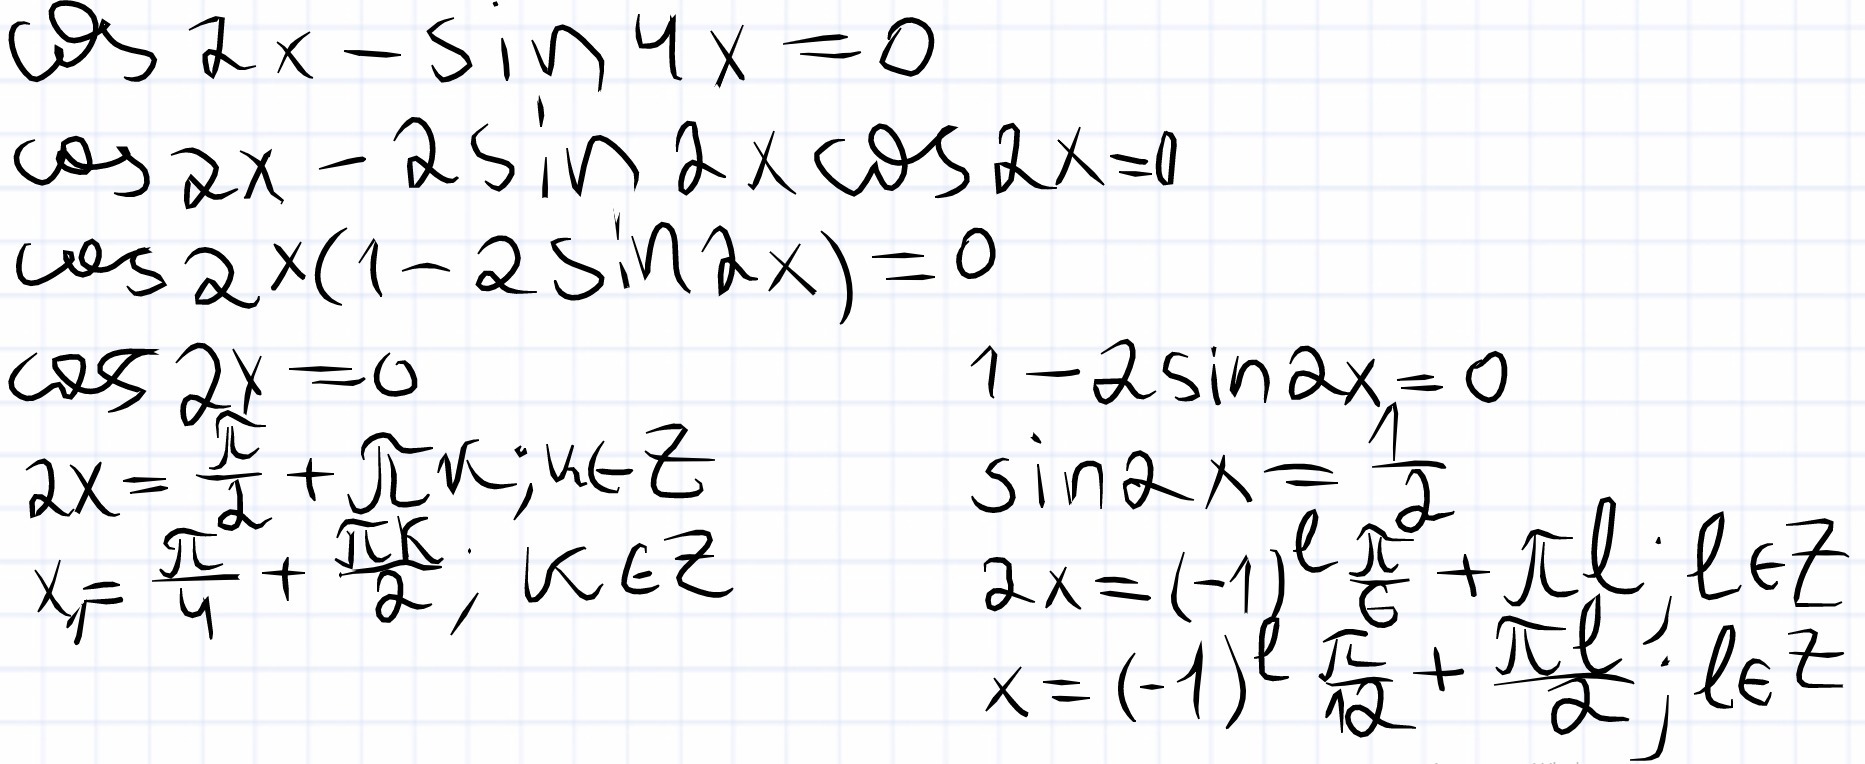 cos 2x - sin 4x = 0
cos 2x - 2 sin 2x cos 2x = 0
cos 2x (1 - 2 sin 2x) = 0
cos 2x = 0
2x = π/2 + πk; k ∈ Z
x₁ = π/4 + πk/2; k ∈ Z
1 - 2 sin 2x = 0
sin 2x = 1/2
2x = (-1)^l π/6 + πl; l ∈ Z
x = (-1)^l π/12 + πl/2; l ∈ Z